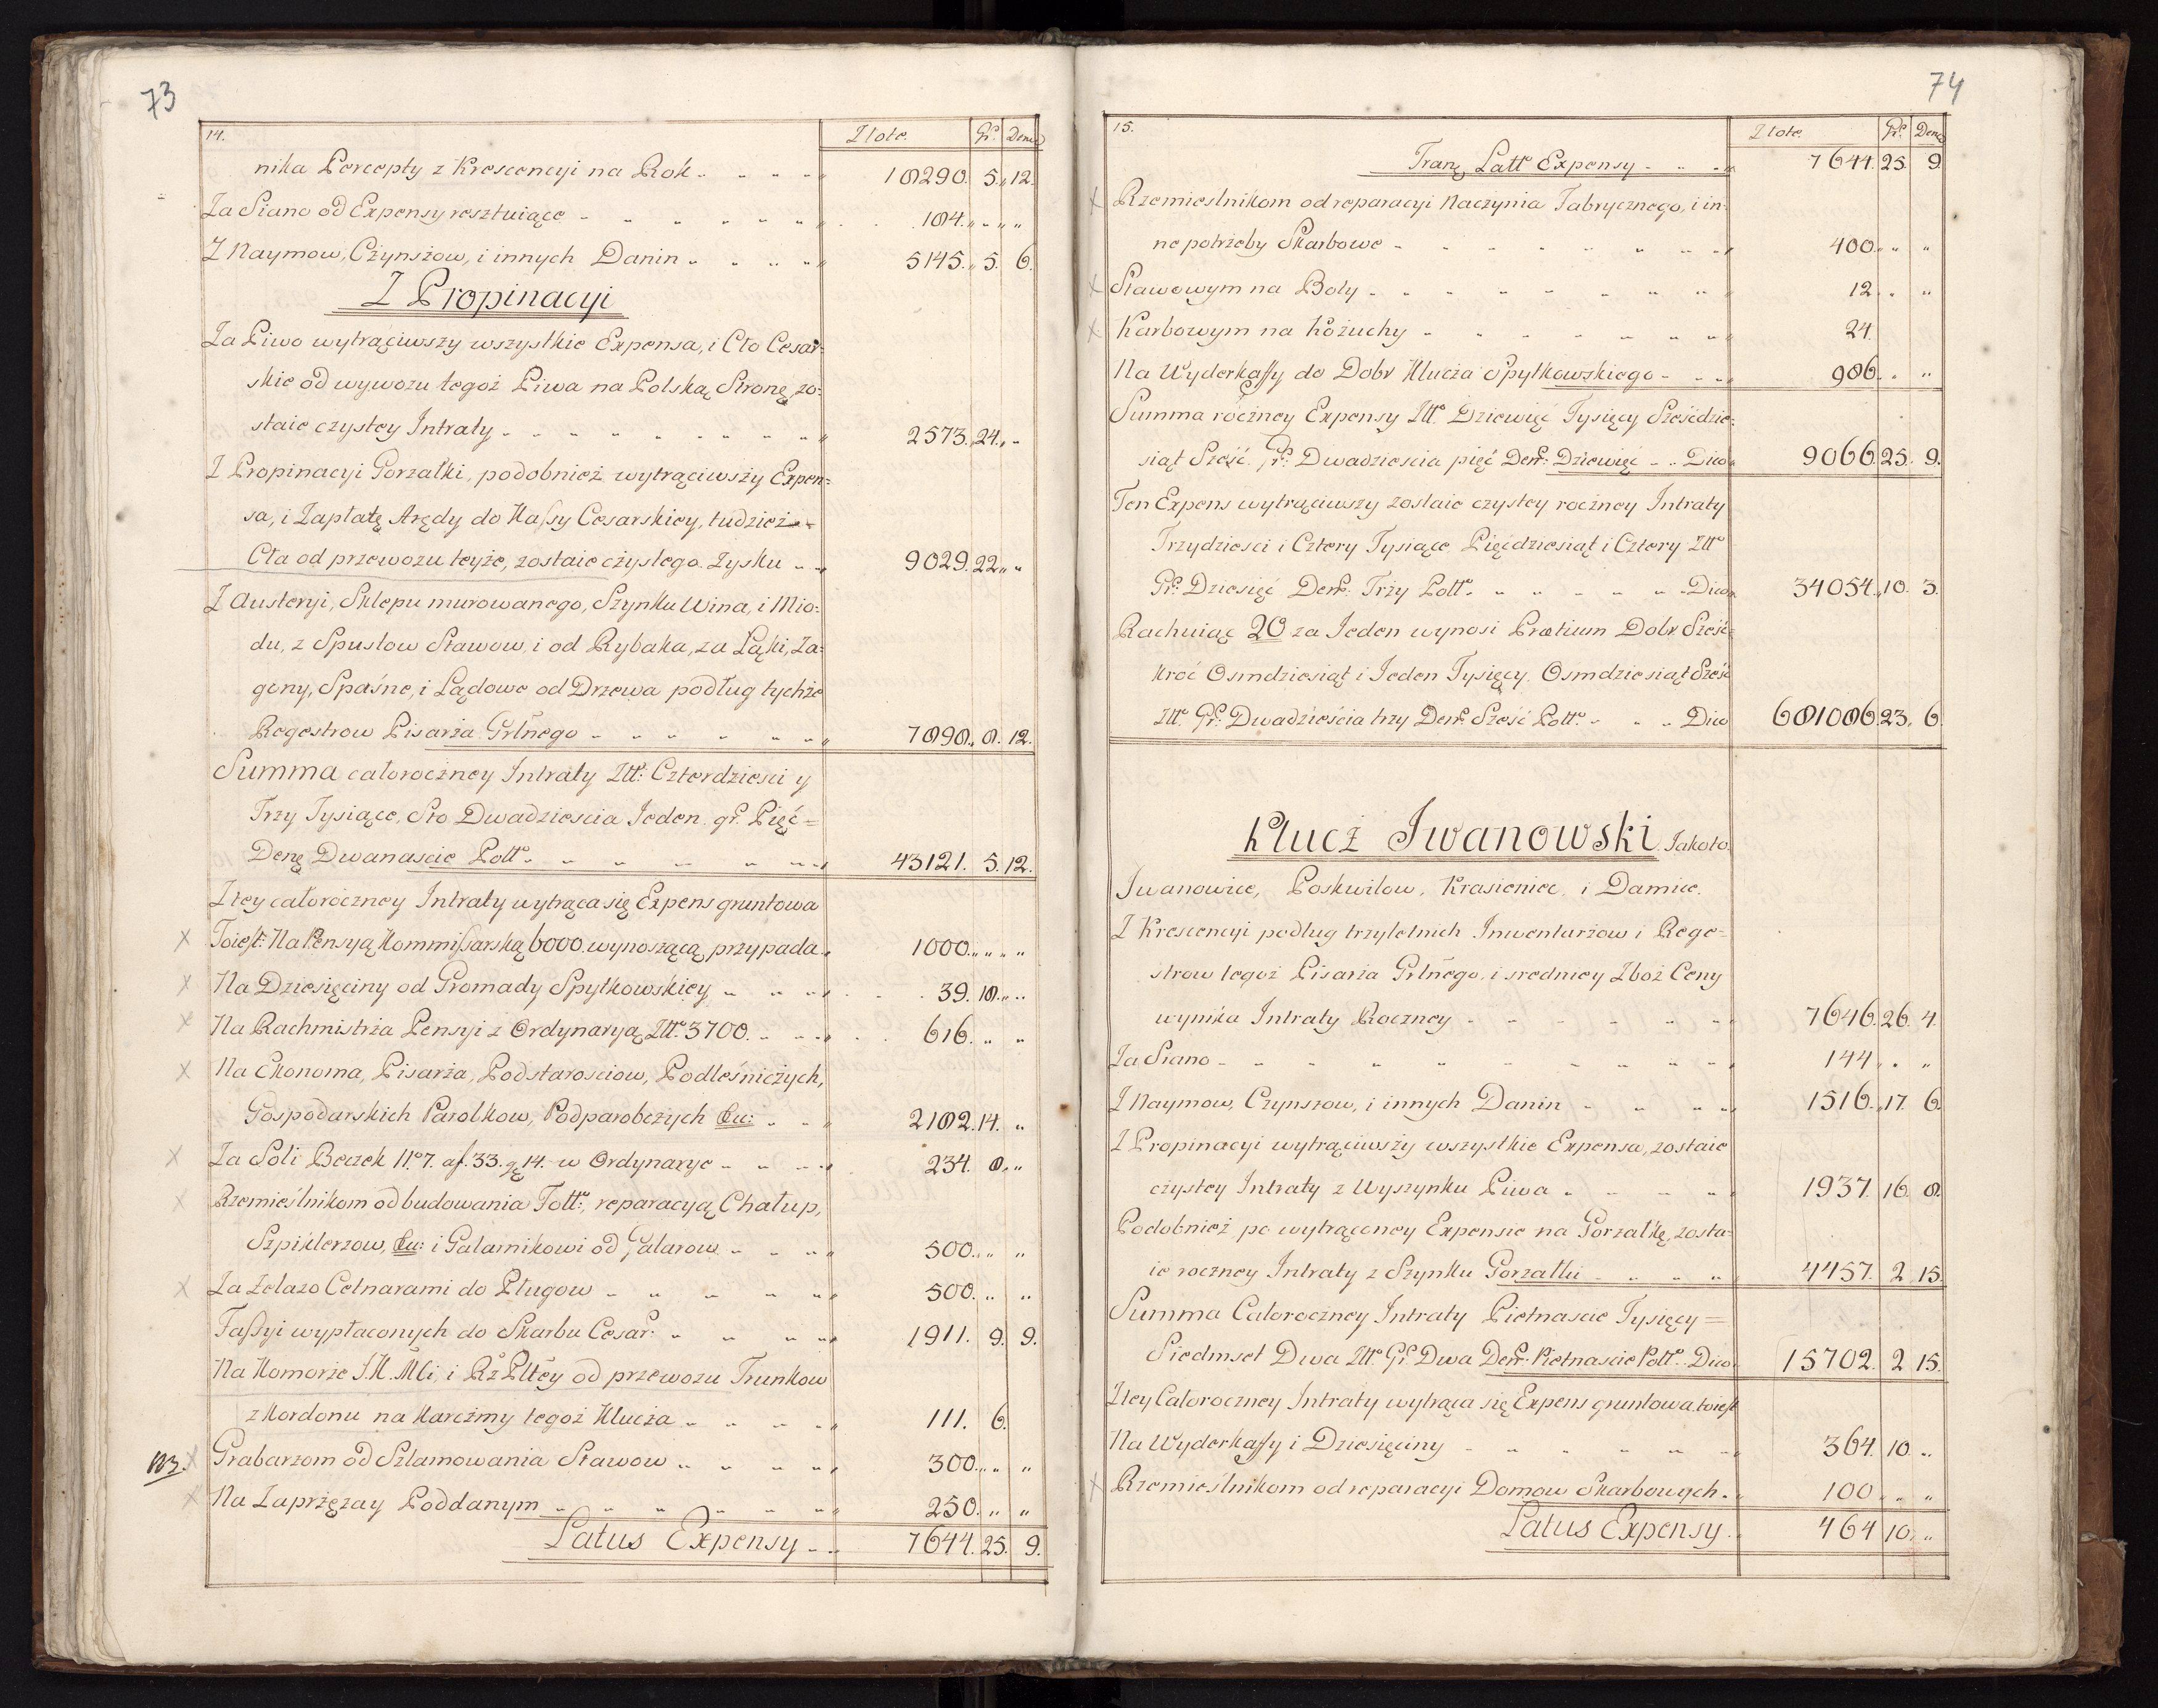 73
14. Złote. Gr. Dena
nika Percepty z Krescencyi na Rok 18290. 5. 12.
Za Siano od Expensy resztuiące 184.
Z Naymow, Czynszow, i innych Danin 5145. 5. 6.
Z Propinacyi
Za Piwo wytrąciwszy wszystkie Expensa, i Cło Cesar=
skie od wywozu tegoż Piwa na Polską Stronę, zo=
staie czystey Intraty 2573. 24.
Z Propinacyi Gorzałki, podobnież wytrąciwszy Expen=
sa, i Zapłatę Arędy do Kassy Cesarskiey, tudzież
Cła od przewozu teyże, zostaie czystego Zysku 9029. 22
Z Austeryi, Sklepu murowanego, Szynku Wina, i Mio=
du, z Spustow Stawow, i od Rybaka, za Łąki, Za=
gony, Spaśne, i Lądowe od Drzewa podług tychże
Regestrow Pisarza Grltnego 7898. 8. 12.
Summa całoroczney Intraty Złł: Czterdziesci y
Trzy Tysiące, Sto Dwadziescia Jeden. gr. Pięć=
Denę Dwanascie Poll. 43121. 5. 12.
Z tey całoroczney Intraty wytrąca się Expens gruntowa
x Toiest: Na Pensyą Kommissarską 6000. wynoszącą przypada 1000.
x Na Dziesięciny od Gromady Spytkowskiey 39. 18.
x Na Rachmistrza Pensyi z Ordynaryą Złł. 3700. 616.
x Na Ekonoma, Pisarza, Podstarosciow, Podleśniczych,
Gospodarskich Parolkow, Podparobczych &c: 2182. 14.
x Za Soli Beczek 11.° 7. af. 33. gę 14. w Ordynarye 234. 8.
x Rzemieślnikom od budowania Foll:, reparacyą Chałup,
Szpiklerzow, &c: i Galarnikowi od Galarow 500.
x Za Zelazo Cetnarami do Pługow 500.
Fassyi wypłaconych do Skarbu Cesar: 1911. 9. 9.
Na Komorze J.K. Mci, i RzPltey od przewozu Trunkow
z Kordonu na Karczmy tegoż Klucza 111. 6.
183. x Grabarzom od Szlamowania Stawow 300.
x Na Zaprzęzay Poddanym 250.
Latus Expensy 7644. 25. 9.
74
15. Złote. Gr. Dena
Tranę Latt Expensy 7644. 25. 9.
x Rzemieslnikom od reparacyi Naczynia Fabrycznego, i in=
ne potrzeby Skarbowe 400.
x Stawowym na Boty 12.
x Karbowym na Kożuchy 24.
Na Wyderkassy do Dobr Klucza Spytkowskiego 986.
Summa roczney Expensy Złł. Dziewięć Tysięcy Sześćdzie=
siąt Sześć. Gr: Dwadziescia pięć Den: Dziewięć Dico 9066. 25. 9.
Ten Expens wytrąciwszy zostaie czystey roczney Intraty
Trzydziesci i Cztery Tysiące Pięćdziesiąt i Cztery Złł
Gr. Dziesięć Den: Trzy Poll. Dico 34054. 10. 3.
Rachuiąc 20 za Jeden wynosi Prætium Dobr Sześć=
kroć Osmdziesiąt i Jeden Tysięcy, Osmdziesiąt Sześć
Złł. Gr: Dwadzieścia trzy Den: Sześć Poll. Dico 681086. 23. 6.
Klucż Iwanowski Jakoto.
Iwanowice, Poskwitow, Krasieniec, i Damice.
Z Krescencyi podług trzyletnich Inwentarzow i Rege=
strow tegoż Pisarza Grltnego, i sredniey Zboż Ceny
wynika Intraty Roczney 7646. 26. 4.
Za Siano 144.
Z Naymow, Czynszow, i innych Danin 1516. 17. 6.
Z Propinacyi wytrąciwszy wszystkie Expensa, zostaie
czystey Intraty z Wyszynku Piwa 1937. 16. 8.
Podobnież po wytrąconey Expensie na Gorzałkę, zosta=
ie roczney Intraty z Szynku Gorzałki 4457. 2. 15.
Summa Całoroczney Intraty Pietnascie Tysięcy=
Siedmset Dwa Złł. Gr: Dwa Den: Pietnascie Poll. Dico 15702. 2. 15.
Z tey Całoroczney Intraty wytrąca się Expens gruntowa toiest
Na Wyderkassy i Dziesięciny 364. 10.
x Rzemieślnikom od reparacyi Domow Skarbowych 100
Latus Expensy. 464 10.